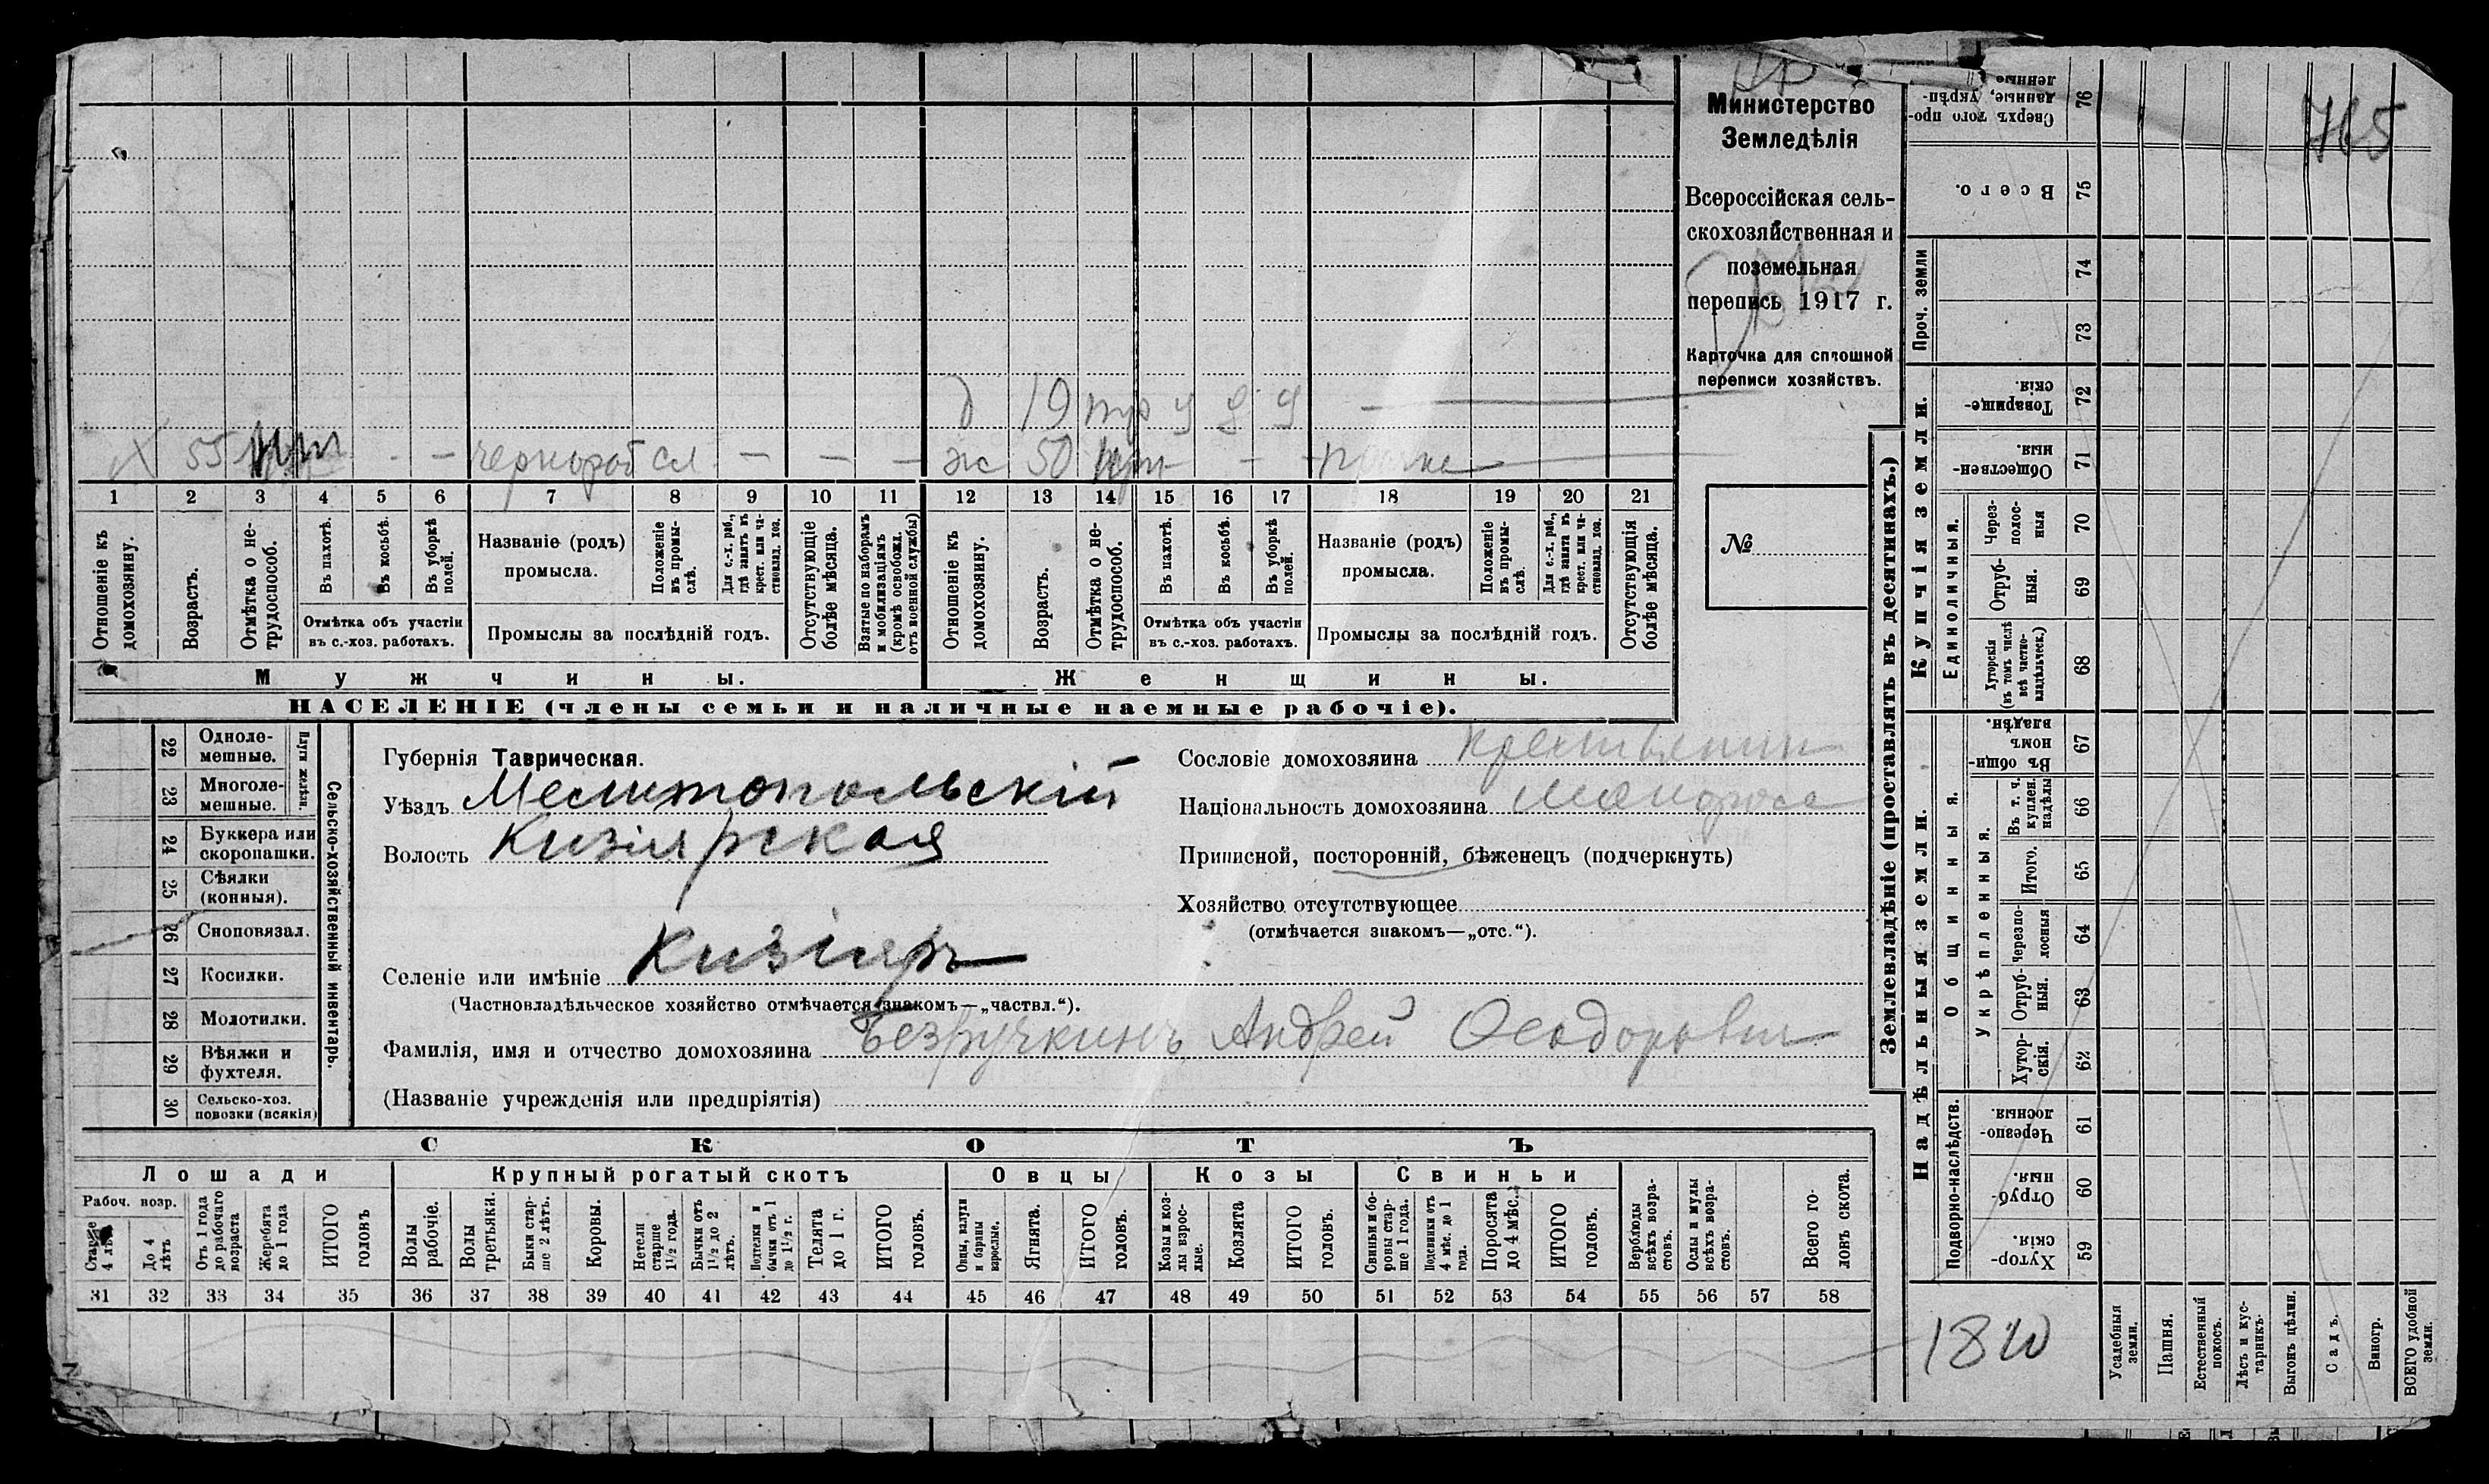 765
Министерство
Земледѣлія
Всероссійская сель-
скохозяйственная и
поземельная
перепись 1917 г.
Карточка для сплошной
переписи хозяйствъ.
№
д 19 у
х 55 - - чернораб сл - - - ж 50 - -
1 2 3 4 5 6 7 8 9 10 11 12 13 14 15 16 17 18 19 20 21
Отношеніе къ домохозяину.
Возрастъ.
Отмѣтка о не-трудоспособ.
Въ пахотѣ.
Въ косьбѣ.
Въ уборкѣ полей.
Отмѣтка объ участіи
въ с.-хоз. работахъ.
Названіе (родъ)
промысла.
Положеніе въ промы-слѣ.
Для с.-х. раб., гдѣ занятъ въ крест. или ча-стновлад. хоз.
Промыслы за послѣдній годъ.
Отсутствующіе болѣе мѣсяца.
Взятые по наборамъ и мобилизаціямъ (кромѣ освобожд. отъ военной службы)
Отношеніе къ домохозяину.
Возрастъ.
Отмѣтка о не-трудоспособ.
Въ пахотѣ.
Въ косьбѣ.
Въ уборкѣ полей.
Отмѣтка объ участіи
въ с.-хоз. работахъ.
Названіе (родъ)
промысла.
Положеніе въ промы-слѣ.
Для с.-х. раб., гдѣ занята въ крест. или ча-стновлад. хоз.
Промыслы за послѣдній годъ.
Отсутствующія болѣе мѣсяца.
Мужчины. Женщины.
НАСЕЛЕНІЕ (члены семьи и наличные наемные рабочіе).
Сельско-хозяйственный инвентарь.
Плуги желѣзн.
22 Одноле-мешные.
23 Многоле-мешные.
24 Буккера или скоропашки.
25 Сѣялки (конныя).
26 Сноповязал.
27 Косилки.
28 Молотилки.
29 Вѣялки и фухтеля.
30 Сельско-хоз. повозки (всякія)
Губернія Таврическая.
Уѣздъ Мелитопольскій
Волость Кизіярская
Селеніе или имѣніе Кизіяръ
(Частновладѣльческое хозяйство отмѣчается знакомъ—„частвл.“).
Фамилія, имя и отчество домохозяина Безручкинъ Андрей Феодорович
(Названіе учрежденія или предпріятія)
Сословіе домохозяина крестьянин
Національность домохозяина малоросс
Приписной, посторонній, бѣженецъ (подчеркнуть)
Хозяйство отсутствующее
(отмѣчается знакомъ—„отс.“).
СКОТЪ
Лошади Крупный рогатый скотъ Овцы Козы Свиньи
Рабоч. возр.
Старше 4 лѣтъ
До 4 лѣтъ
Отъ 1 года до рабочаго возраста
Жеребята до 1 года
ИТОГО головъ
Волы рабочіе.
Волы третьяки.
Быки стар-ше 2 лѣтъ.
Коровы.
Нетели старше 1½ года.
Бычки отъ 1½ до 2 лѣтъ.
Подтелки и бычки отъ 1 до 1½ г.
Телята до 1 г.
ИТОГО головъ.
Овцы, валухи и бараны взрослые.
Ягнята.
ИТОГО головъ.
Козы и коз-лы взрос-лые.
Козлята
ИТОГО головъ.
Свиньи и бо-ровы стар-ше 1 года.
Подсвинки отъ 4 мѣс. до 1 года.
Поросята до 4 мѣс.
ИТОГО головъ.
Верблюды всѣхъ возра-стовъ.
Ослы и мулы всѣхъ возра-стовъ.
Всего го-ловъ скота.
31 32 33 34 35 36 37 38 39 40 41 42 43 44 45 46 47 48 49 50 51 52 53 54 55 56 57 58
Землевладѣніе (проставлять въ десятинахъ.)
Купчія земли.
Надѣльныя земли.
Сверхъ того про-данные, укрѣп-ленные 76
Всего. 75
Проч. земли
74
73
Товарище-скія. 72
Обществен-ныя. 71
Единоличныя.
Через-полос-ныя 70
Отруб-ныя. 69
Хуторскія (въ томъ числѣ всѣ частно-владѣльческ.) 68
Общинныя.
Въ общин-номъ владѣн. 67
Укрѣпленныя.
Въ т. ч. куплен. надѣлы 66
Итого. 65
Черезпо-лосныя 64
Отруб-ныя. 63
Хутор-скія. 62
Подворно-наслѣдств.
Черезпо-лосныя. 61
Отруб-ныя. 60
Хутор-скія. 59
Усадебныя земли.
Пашня.
Естественный покосъ.
Лѣсъ и кус-тарникъ.
Выгонъ цѣлин.
Садъ.
Виногр.
ВСЕГО удобной земли.